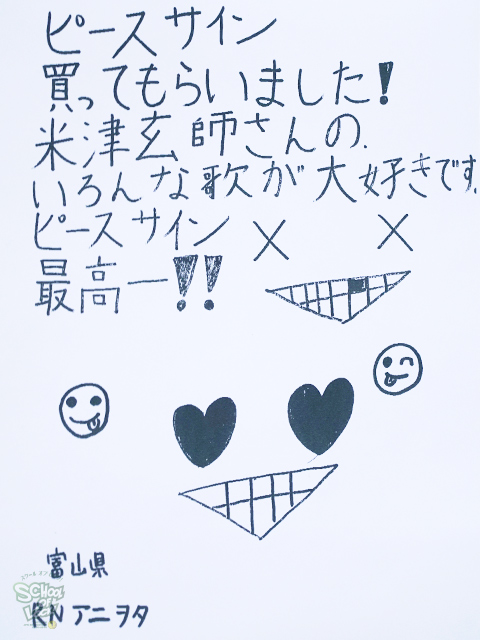 ピースサイン
買ってもらいました!
米津玄師さんの.
いろんな歌が大好きです.
ピースサイン
最高ー!!
富山県
RN アニヲタ